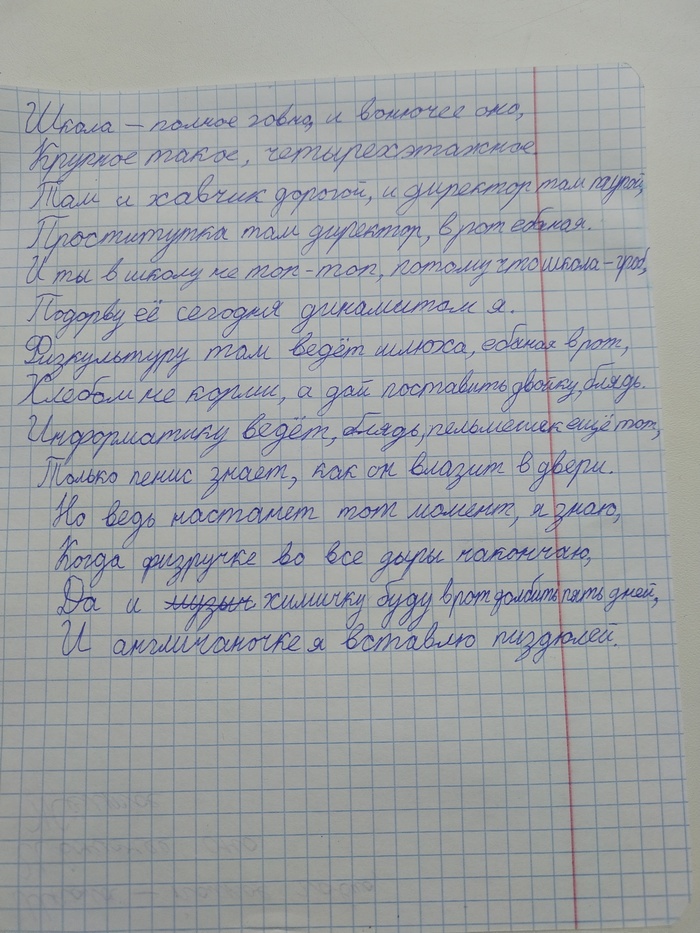 Школа – полное говно, и вонючее оно,
Крупное такое, четырехэтажное.
Там и хавчик дорогой, и директор там тупой,
Проститутка там директор, в рот ебаная.
И ты в школу не топ-топ, потому что школа – гроб,
Подорву её сегодня динамитом я.
Физкультуру там ведёт шлюха, ебаная в рот,
Хлебом не корми, а дай поставить двойку, блядь.
Информатику ведёт, блядь, пельмешек ещё тот,
Только пенис знает, как он влазит в двери.
Но ведь настанет тот момент, я знаю,
Когда физручке во все дыры накончаю,
Да и химичку буду в рот долбить пять дней,
И англичаночке я вставлю пиздюлей.